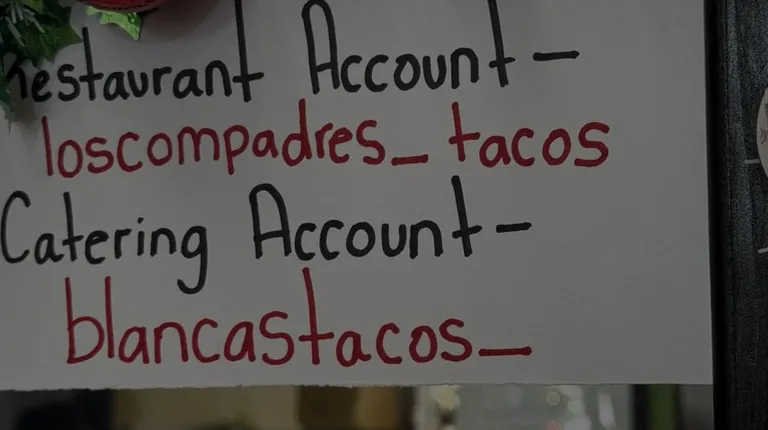 Restaurant Account -
loscompadres_tacos
Catering Account -
blancastacos_